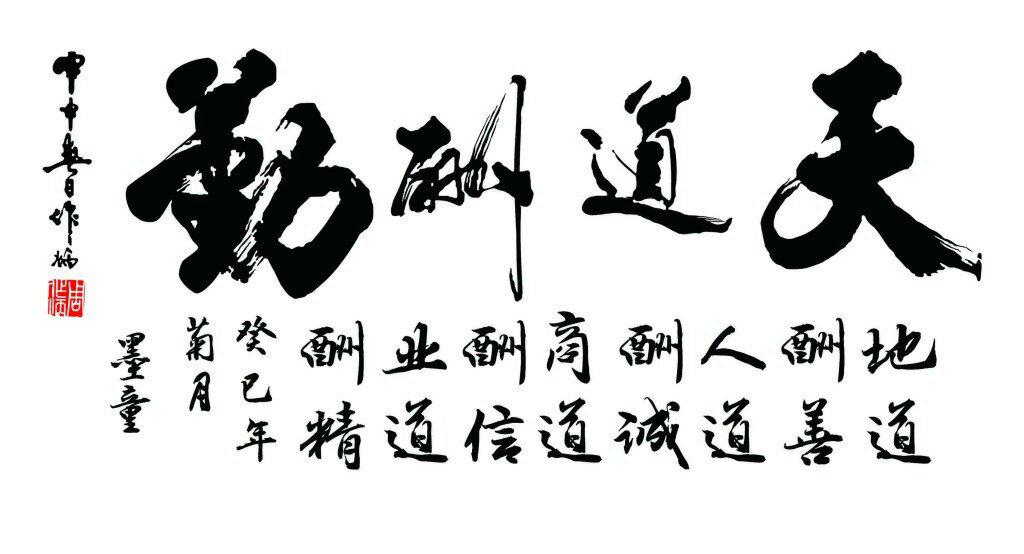 天道酬勤
地道
酬善
人道
酬诚
商道
酬信
业道
酬精
癸巳年
菊月
墨童
甲申春日